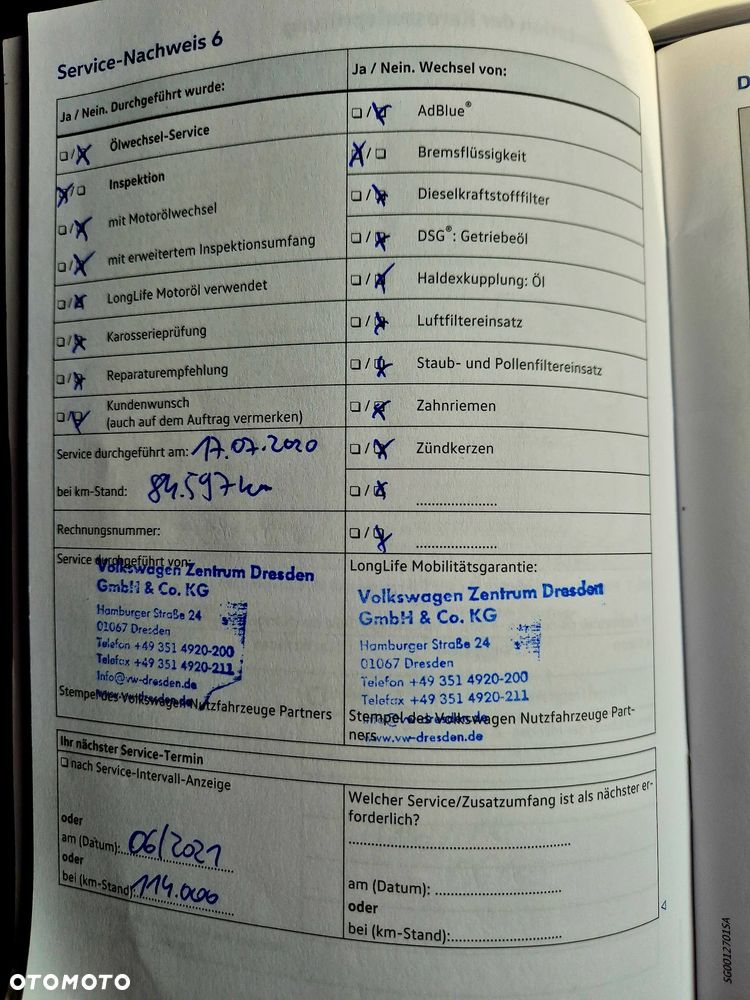 Service-Nachweis 6
Ja / Nein. Durchgeführt wurde:
Ölwechsel-Service
Inspektion
mit Motorölwechsel
mit erweitertem Inspektionsumfang
LongLife Motoröl verwendet
Karosserieprüfung
Reparaturempfehlung
Kundenwunsch
(auch auf dem Auftrag vermerken)
Service durchgeführt am: 17.07.2020
bei km-Stand: 84.597 km
Rechnungsnummer:
Service durchgeführt von:
Volkswagen Zentrum Dresden
GmbH & Co. KG
Hamburger Straße 24
01067 Dresden
Telefon +49 351 4920-200
Telefax +49 351 4920-211
Info@vw-dresden.de
www.vw-dresden.de
Stempel des Volkswagen Nutzfahrzeuge Partners
Ja / Nein. Wechsel von:
AdBlue®
Bremsflüssigkeit
Dieselkraftstofffilter
DSG®: Getriebeöl
Haldexkupplung: Öl
Luftfiltereinsatz
Staub- und Pollenfiltereinsatz
Zahnriemen
Zündkerzen
LongLife Mobilitätsgarantie:
Volkswagen Zentrum Dresden
GmbH & Co. KG
Hamburger Straße 24
01067 Dresden
Telefon +49 351 4920-200
Telefax +49 351 4920-211
Stempel des Volkswagen Nutzfahrzeuge Part-
ners
www.vw-dresden.de
Ihr nächster Service-Termin
nach Service-Intervall-Anzeige
oder
am (Datum): 06/2021
oder
bei (km-Stand): 114.000
Welcher Service/Zusatzumfang ist als nächster er-
forderlich?
am (Datum):
oder
bei (km-Stand):
D
SG0012701SA
OTOMOTO